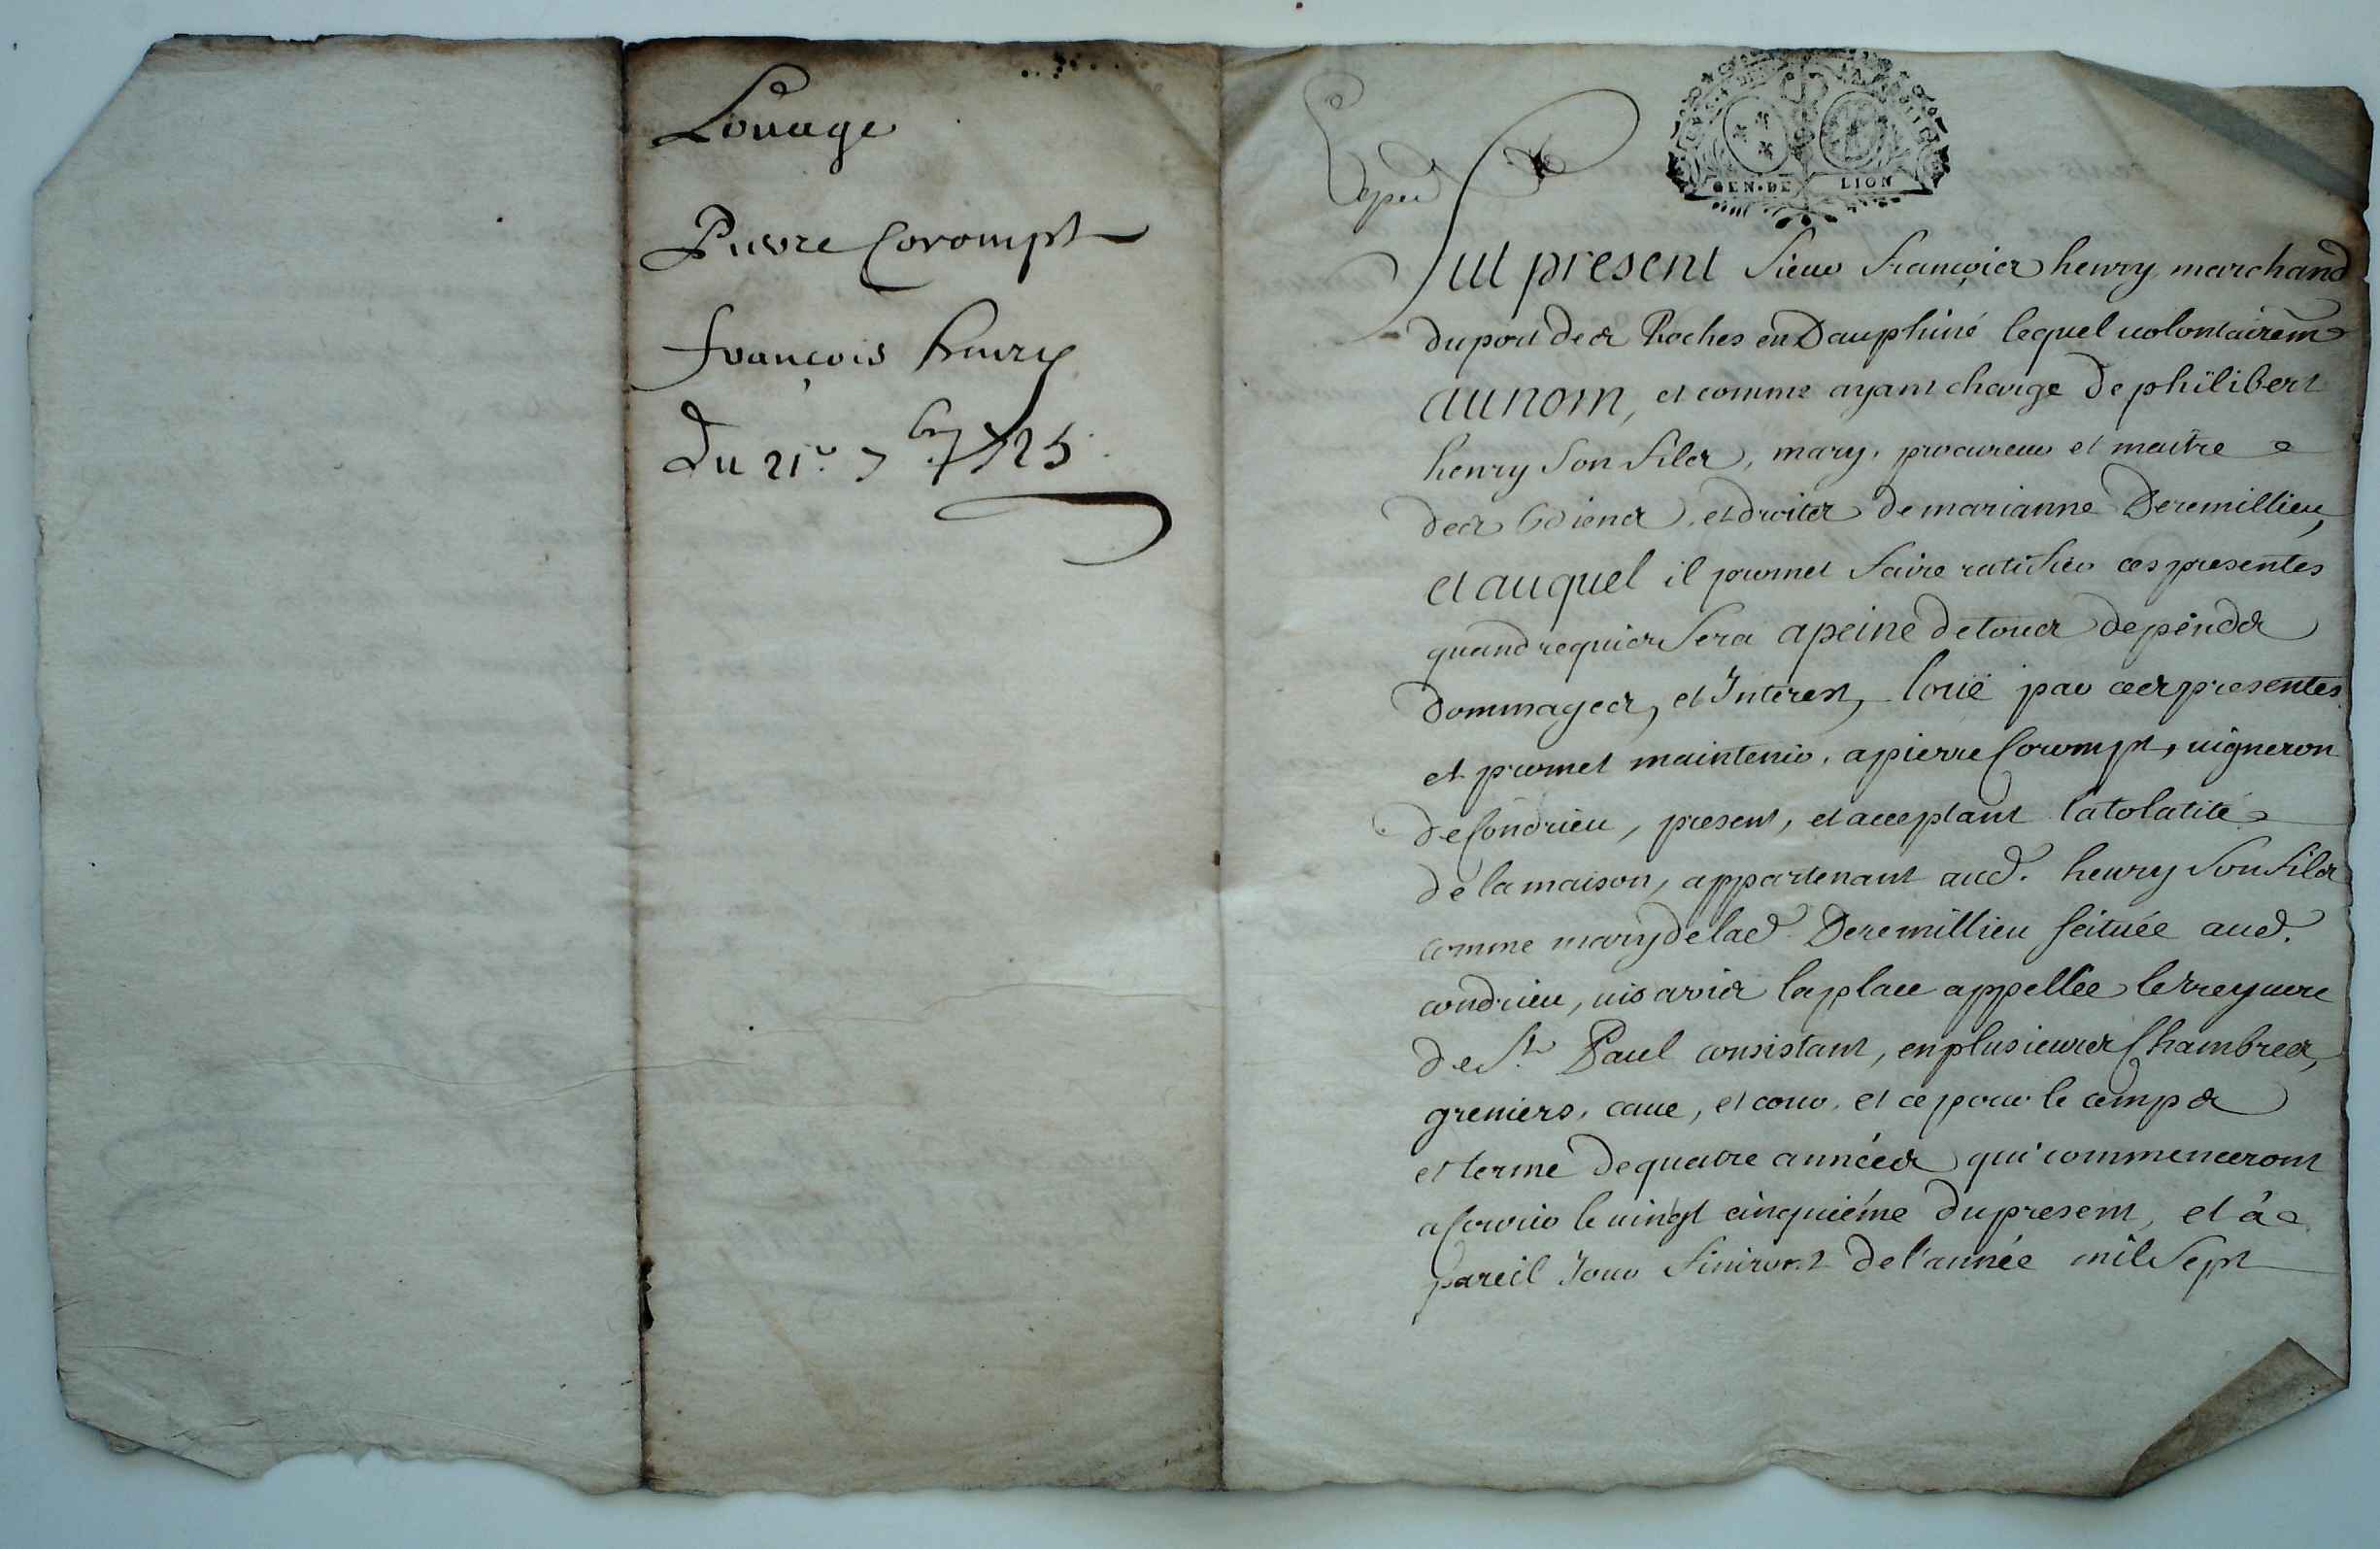 Louage
Pierre Corompt
françois henry
Du 21e 7bre 1725
GEN·DE LION
Fut present sieur françois henry marchand
du port des Roches en Dauphiné lequel volontairemt
au nom, et comme ayant charge de philibert
henry son fils, mary, procureur et maitre
des biens et droits de marianne Deremillieu,
et auquel il promet faire ratifier ces presentes
quand requis sera a peine de tous depends
dommages, et Interest, loüe par ces presentes
et promet maintenir, a pierre Corompt, vigneron
de Condrieu, present, et acceptant la tolatité
de la maison, appartenant aud. henry son fils
comme mary de lad. Deremillieu scituée aud.
condrieu, vis a vis la place appellée
de St. Paul consistant, en plusieurs Chambres,
greniers, cave, et cour, et ce pour le temps
et terme de quatre années qui commenceront
a Courir le vingt cinquiéme du present, et à
pareil Jour finiront de l'année mil sept